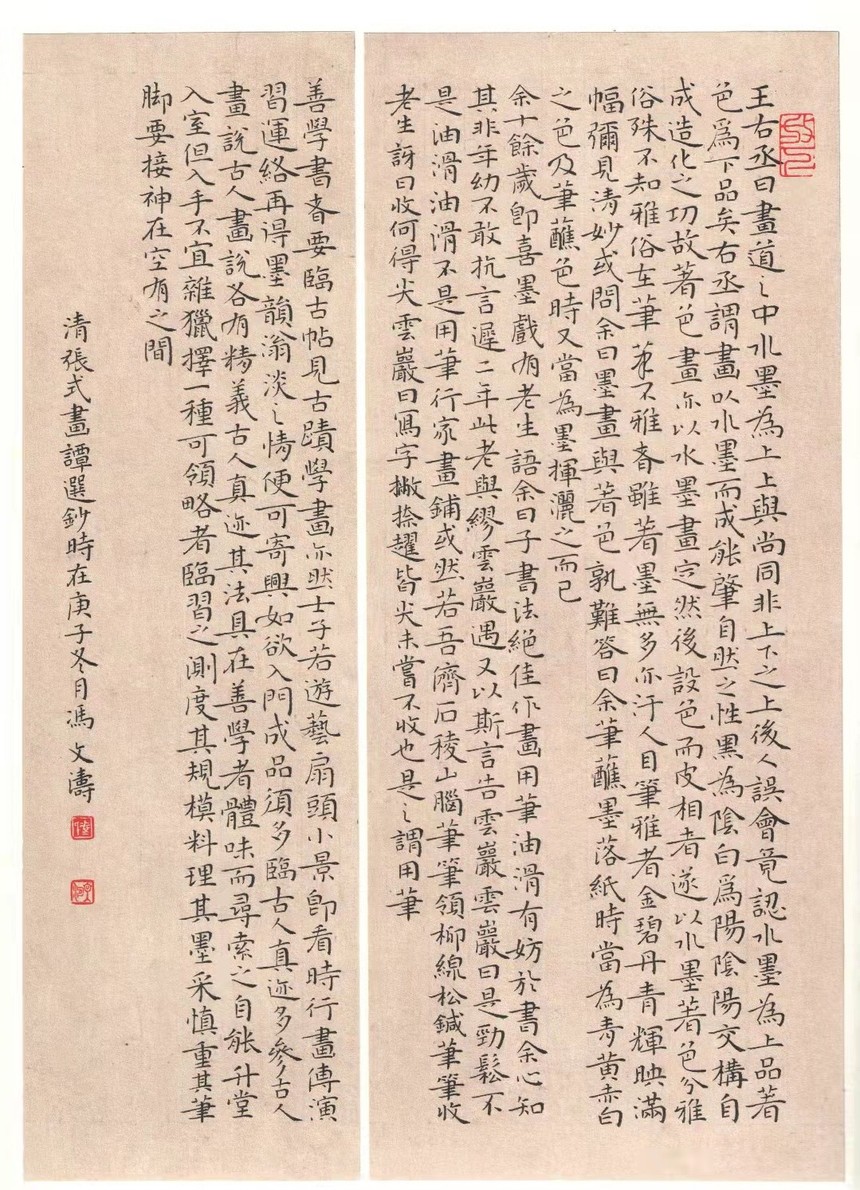 王右丞曰畫道之中水墨為上上與尚同非上下之上後人誤會竟認水墨為上品著
色爲下品矣右丞謂畫以水墨而成能肇自然之性黑為陰白爲陽陰陽交構自
成造化之功故著色畫亦以水墨畫定然後設色而皮相者遂以水墨著色分雅
俗殊不知雅俗在筆筆不雅者雖著墨無多亦汙人目筆雅者金碧丹青輝映滿
幅彌見清妙或問余曰墨畫與著色孰難答曰余筆蘸墨落紙時當為青黃赤白
之色及筆蘸色時又當為墨揮灑之而已
余十餘歲卽喜墨戲有老生語余曰子書法絕佳作畫用筆油滑有妨於書余心知
其非年幼不敢抗言遲二年此老與繆雲巖遇又以斯言告雲巖雲巖曰是勁鬆不
是油滑油滑不是用筆行家畫鋪或然若吾儕石稜山腦筆筆領柳線松鍼筆筆收
老生訝曰收何得尖雲巖曰寫字撇捺趯皆尖未嘗不收也是之謂用筆
善學書者要臨古帖見古蹟學畫亦然士子若遊藝扇頭小景卽看時行畫傳演
習運絡再得墨韻滃淡之情便可寄興如欲入門成品須多臨古人真迹多參古人
畫說古人畫說各有精義古人真迹其法具在善學者體味而尋索之自能升堂
入室但入手不宜雜獵擇一種可領略者臨習之測度其規模料理其墨采慎重其筆
腳要接神在空有之間
清張式畫譚選鈔時在庚子冬月馮文濤